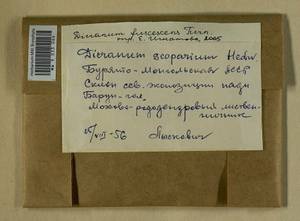 Dicranum fuscescens Turn.
опр. Е. Игнатова, 2005
Dicranum scoparium Hedw
Бурято-Монгольская АССР
Склон сев. экспозиции пади
Барун-гол.
Мохово-рододендровый листвен-
ничник
VII-56 Лыскович